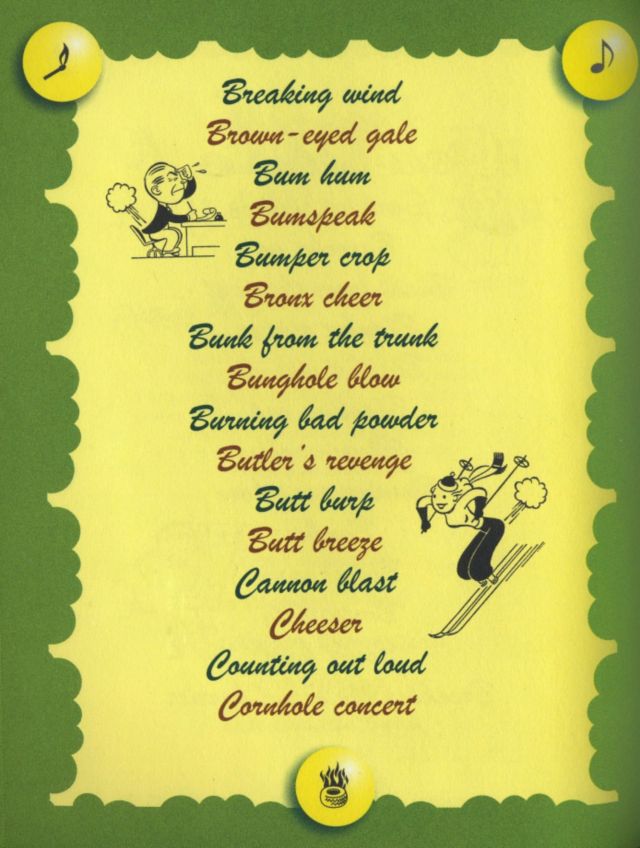 Breaking wind
Brown-eyed gale
Bum hum
Bumspeak
Bumper crop
Bronx cheer
Bunk from the trunk
Bunghole blow
Burning bad powder
Butler's revenge
Butt burp
Butt breeze
Cannon blast
Cheeser
Counting out loud
Cornhole concert